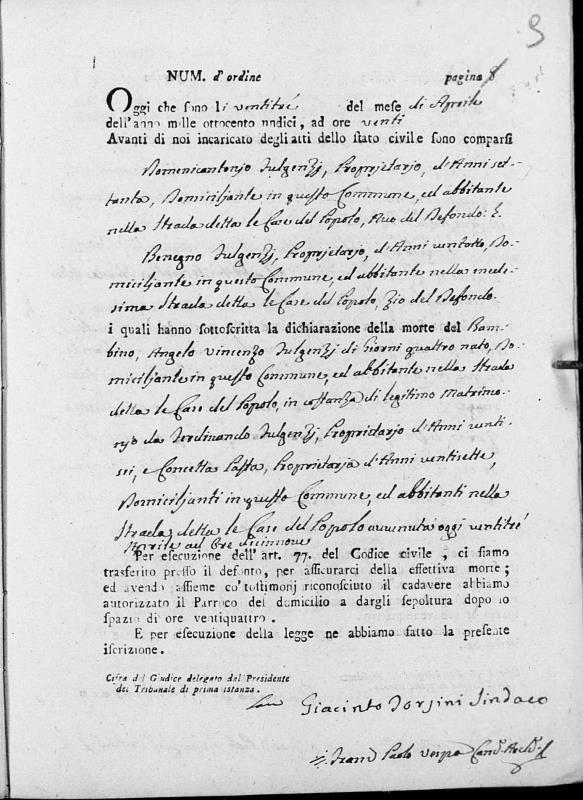 9
NUM. d'ordine pagina 8
Oggi che sono li ventitré del mese di Aprile
dell'anno mille ottocento undici, ad ore venti
Avanti di noi incaricato degli atti dello stato civile sono comparsi
Domenicantonio Fulgenzj, Proprietario, d'Anni set-
tanta, Domiciliante in questo Commune, ed abbitante
nella Strada detta le Case del Popolo, Avo del Defondo: E
Benegno Fulgenzj, Proprietario, d'Anni ventotto, Do-
miciliante in questo Commune, ed abbitante nella mede-
sima Strada detta le Case del Popolo, Zio del Defondo.
i quali hanno sottoscritta la dichiarazione della morte del Bam-
bino, Angelo Vincenzo Fulgenzj di Giorni quattro nato, Do-
miciliante in questo Commune, ed abbitante nella Strada
detta le Case del Popolo, in costanza di legitimo Matrimo-
nio da Ferdinando Fulgenzj, Proprietario d'Anni venti-
sei, e Concetta Pasta, Proprietaria d'Anni ventisette,
Domicilianti in questo Commune, ed abbitanti nella
Strada detta le Case del Popolo avvenuta oggi ventitré
Aprile ad Ore dicinnove
Per esecuzione dell'art. 77. del Codice civile, ci siamo
trasferito presso il defonto, per assicurarci della effettiva morte;
ed avendo assieme co' testimonj riconosciuto il cadavere abbiamo
autorizzato il Parroco del domicilio a dargli sepoltura dopo lo
spazio di ore ventiquattro.
E per esecuzione della legge ne abbiamo fatto la presente
iscrizione.
Cifra del Giudice delegato dal Presidente
del Tribunale di prima istanza.
Giacinto Dorsini Sindaco
Paolo Vespa